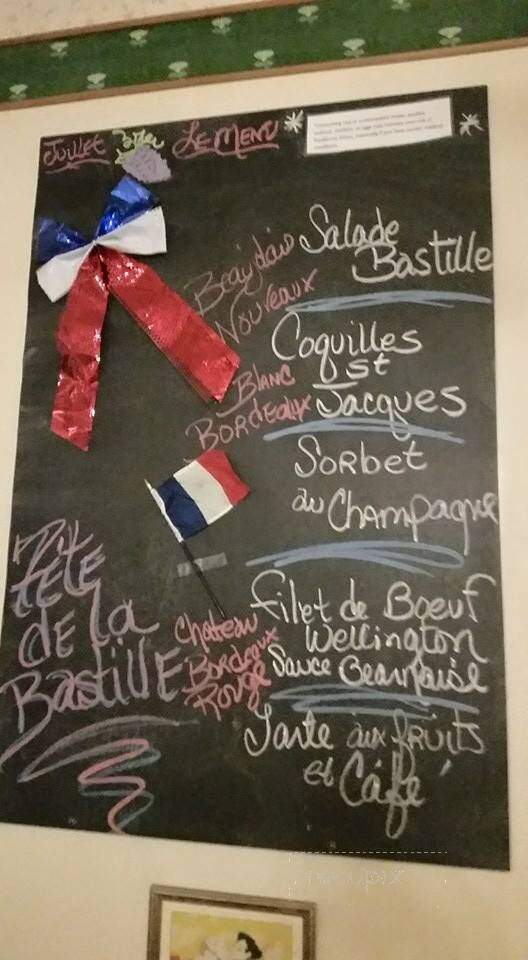 Juillet
LE MENU
Salade
Bastille
Nouveaux
Coquilles
st
Jacques
Blanc
Bordeaux
Sorbet
au Champagne
Fête
DE la
Bastille
Filet de Boeuf
Wellington
Sauce Bearnaise
Chateau
Bordeaux
Rouge
Tarte aux fruits
et Café